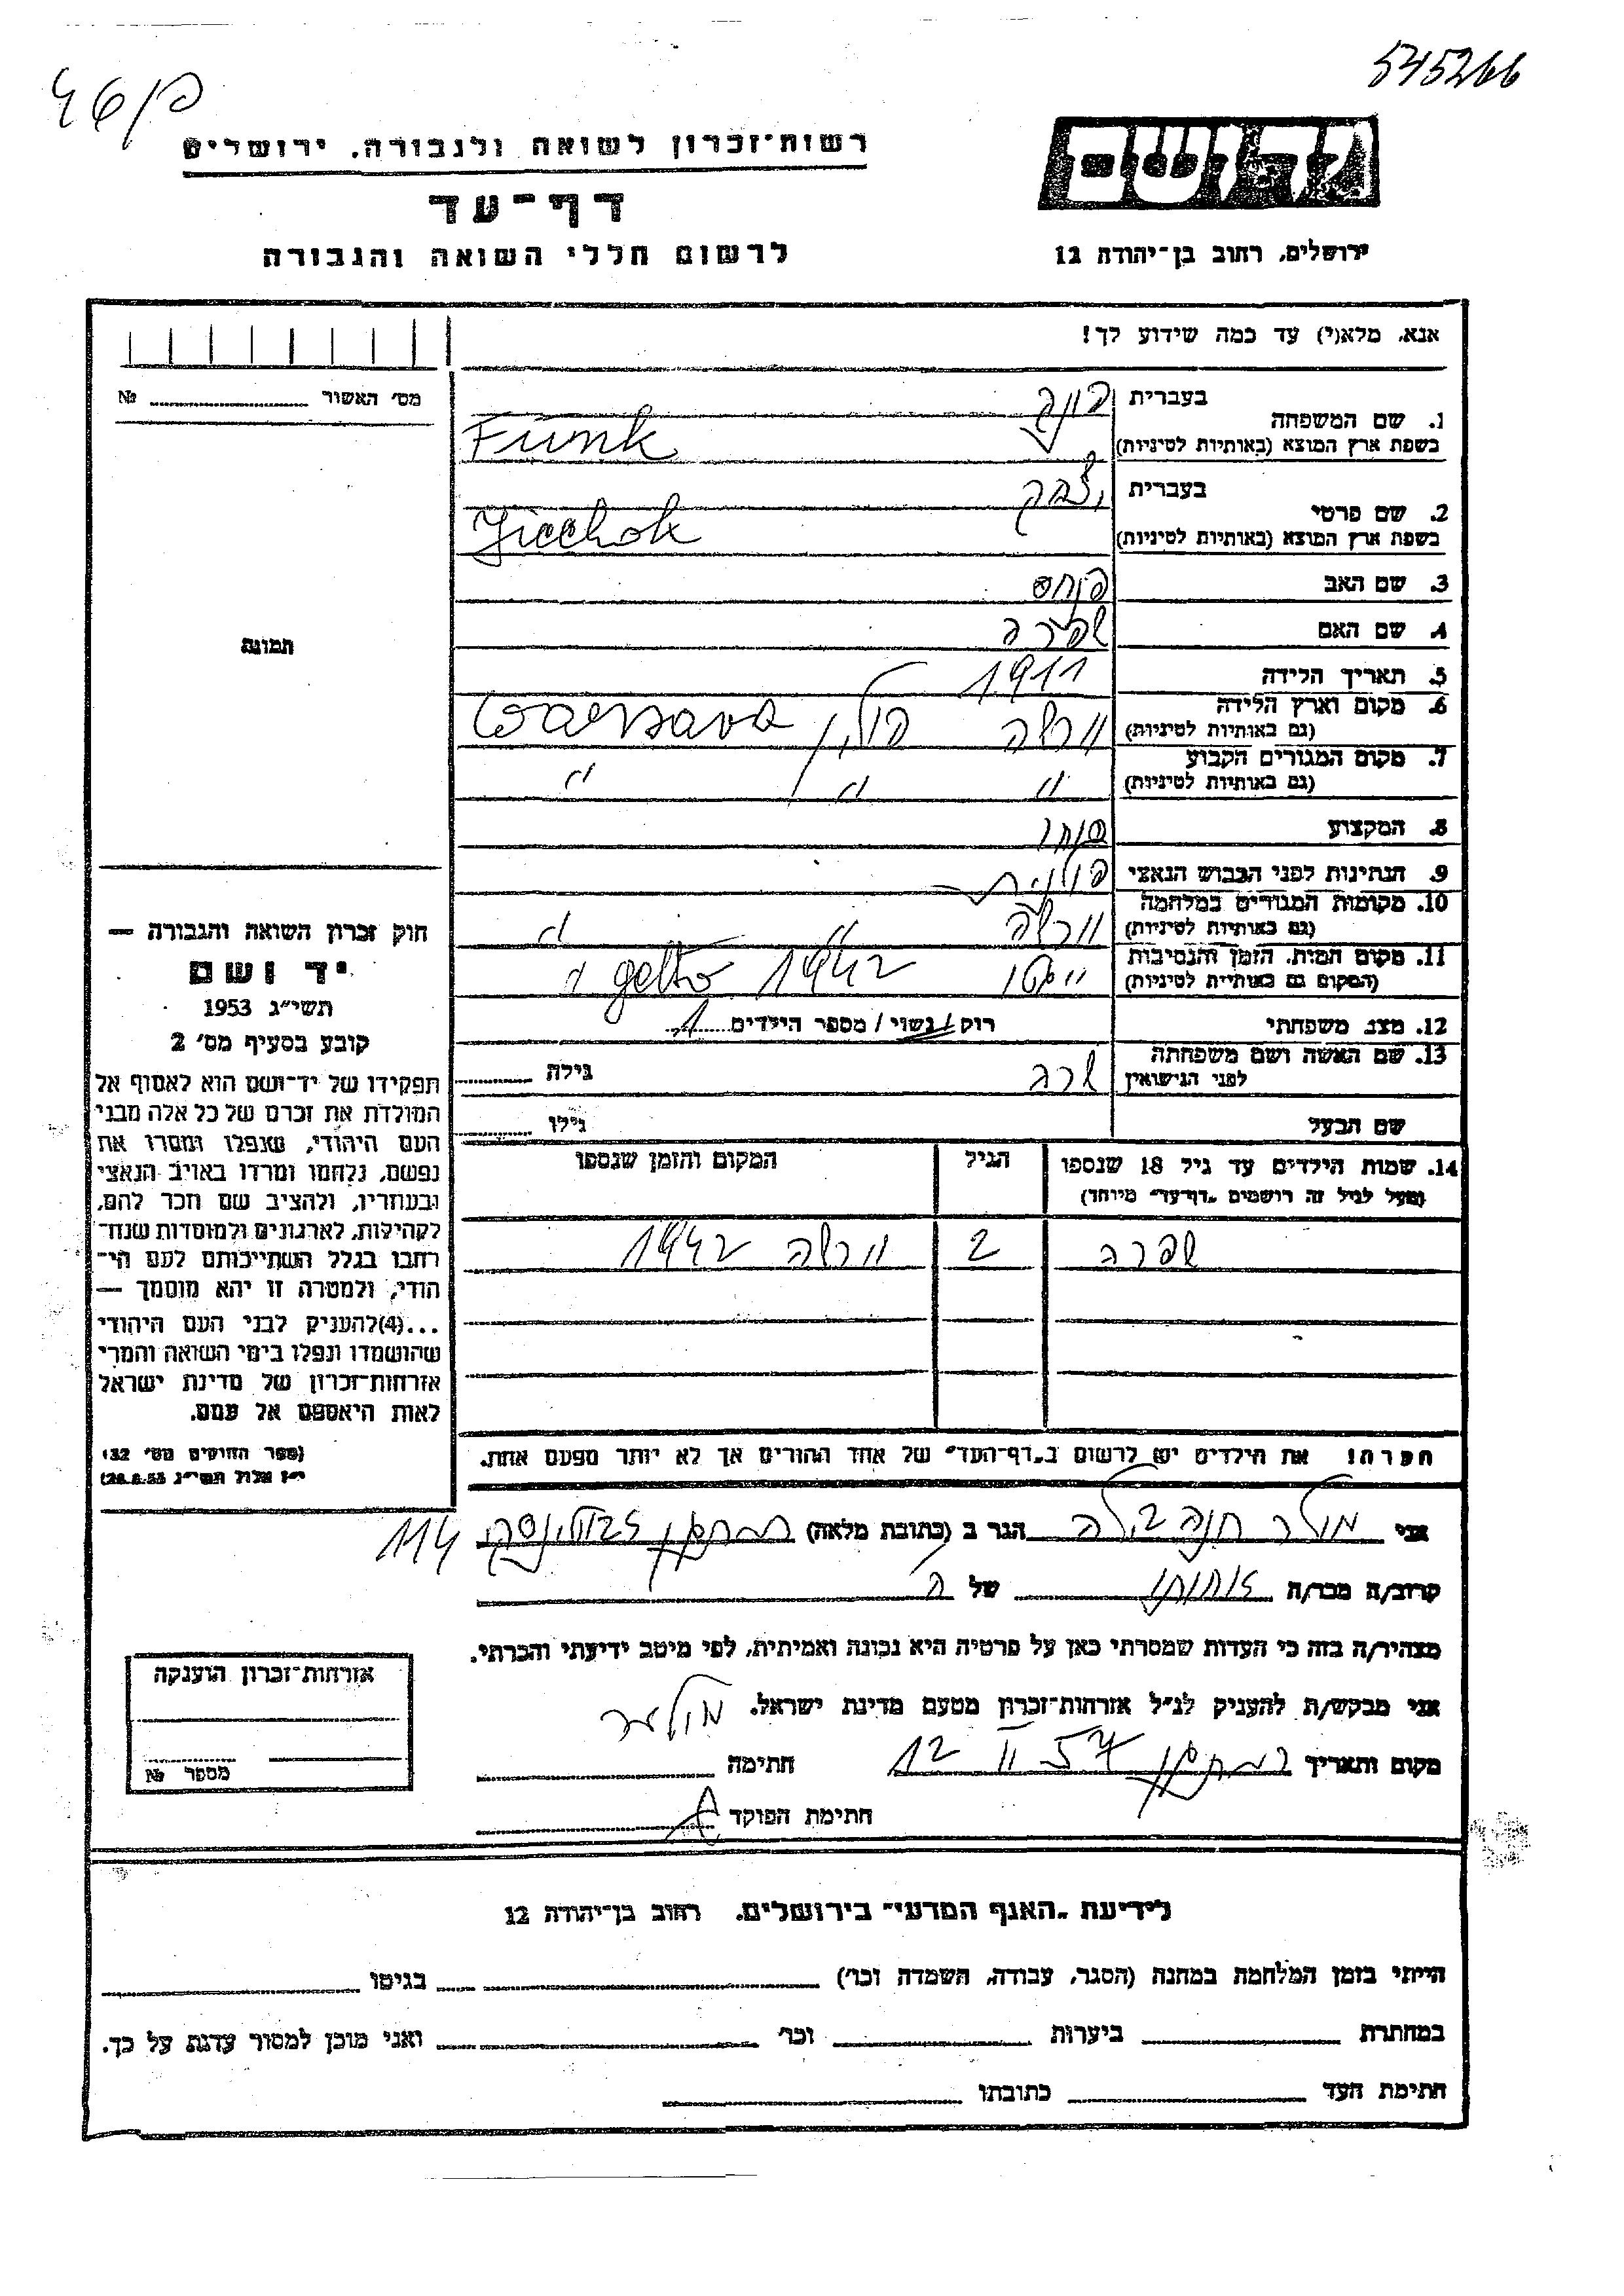 545266
46/פ
רשות־זכרון לשואה ולגבורה, ירושלים
יד ושם
דף־עד
לרשום חללי השואה והגבורה
ירושלים, רחוב בן־יהודה 12
אנא, מלא(י) עד כמה שידוע לך!
מס׳ האשור №
1. שם המשפחה בעברית פונק
בשפת ארץ המוצא (באותיות לטיניות) Funk
2. שם פרטי בעברית יצחק
בשפת ארץ המוצא (באותיות לטיניות) Jicchok
3. שם האב פנחס
4. שם האם שפירה
5. תאריך הלידה 1911
6. מקום וארץ הלידה
(גם באותיות לטיניות) וורשה פולין Warsava
7. מקום המגורים הקבוע
(גם באותיות לטיניות) " " "
8. המקצוע סוחר
9. הנתינות לפני הכבוש הנאצי פולנית
10. מקומות המגורים במלחמה
(גם באותיות לטיניות) וורשה " "
11. מקום המות, הזמן והנסיבות
(המקום גם באותיות לטיניות) 1942 getto "
12. מצב משפחתי רוק / נשוי / מספר הילדים 1
13. שם האשה ושם משפחתה
לפני הנישואין שרה גילה
שם הבעל גילו
14. שמות הילדים עד גיל 18 שנספו הגיל המקום והזמן שנספו
(מעל לגיל זה רושמים „דף־עד״ מיוחד)
שפרה 2 וורשה 1942
הערה! את הילדים יש לרשום ב„דף־העד״ של אחד ההורים אך לא יותר מפעם אחת.
תמונה
חוק זכרון השואה והגבורה —
יד ושם
תשי״ג 1953
קובע בסעיף מס׳ 2
תפקידו של יד־ושם הוא לאסוף אל
המולדת את זכרם של כל אלה מבני
העם היהודי, שנפלו ומסרו את
נפשם, נלחמו ומרדו באויב הנאצי
ובעוזריו, ולהציב שם וזכר להם,
לקהילות, לארגונים ולמוסדות שנח־
רבו בגלל השתייכותם לעם הי־
הודי, ולמטרה זו יהא מוסמך —
...(4) להעניק לבני העם היהודי
שהושמדו ונפלו בימי השואה והמרי
אזרחות־זכרון של מדינת ישראל
לאות היאספם אל עמם.
(ספר החוקים מס׳ 132
י״ז אלול תשי״ג 28.8.53)
אני מולר חנה בילה הגר ב (כתובת מלאה) רמת גן ז׳בוטינסקי 114
קרוב/ה מכר/ה אחותו של ה
מצהיר/ה בזה כי העדות שמסרתי כאן על פרטיה היא נכונה ואמיתית, לפי מיטב ידיעתי והכרתי.
אני מבקש/ת להעניק לנ״ל אזרחות־זכרון מטעם מדינת ישראל.
מקום ותאריך רמת גן 12 II 57 חתימה מולר
חתימת הפוקד
אזרחות־זכרון הוענקה
מספר №
לידיעת „האגף המדעי״ בירושלים, רחוב בן־יהודה 12
הייתי בזמן המלחמה במחנה (הסגר, עבודה, השמדה וכו׳) בגיטו
במחתרת ביערות וכו׳ ואני מוכן למסור עדות על כך.
חתימת העד כתובתו